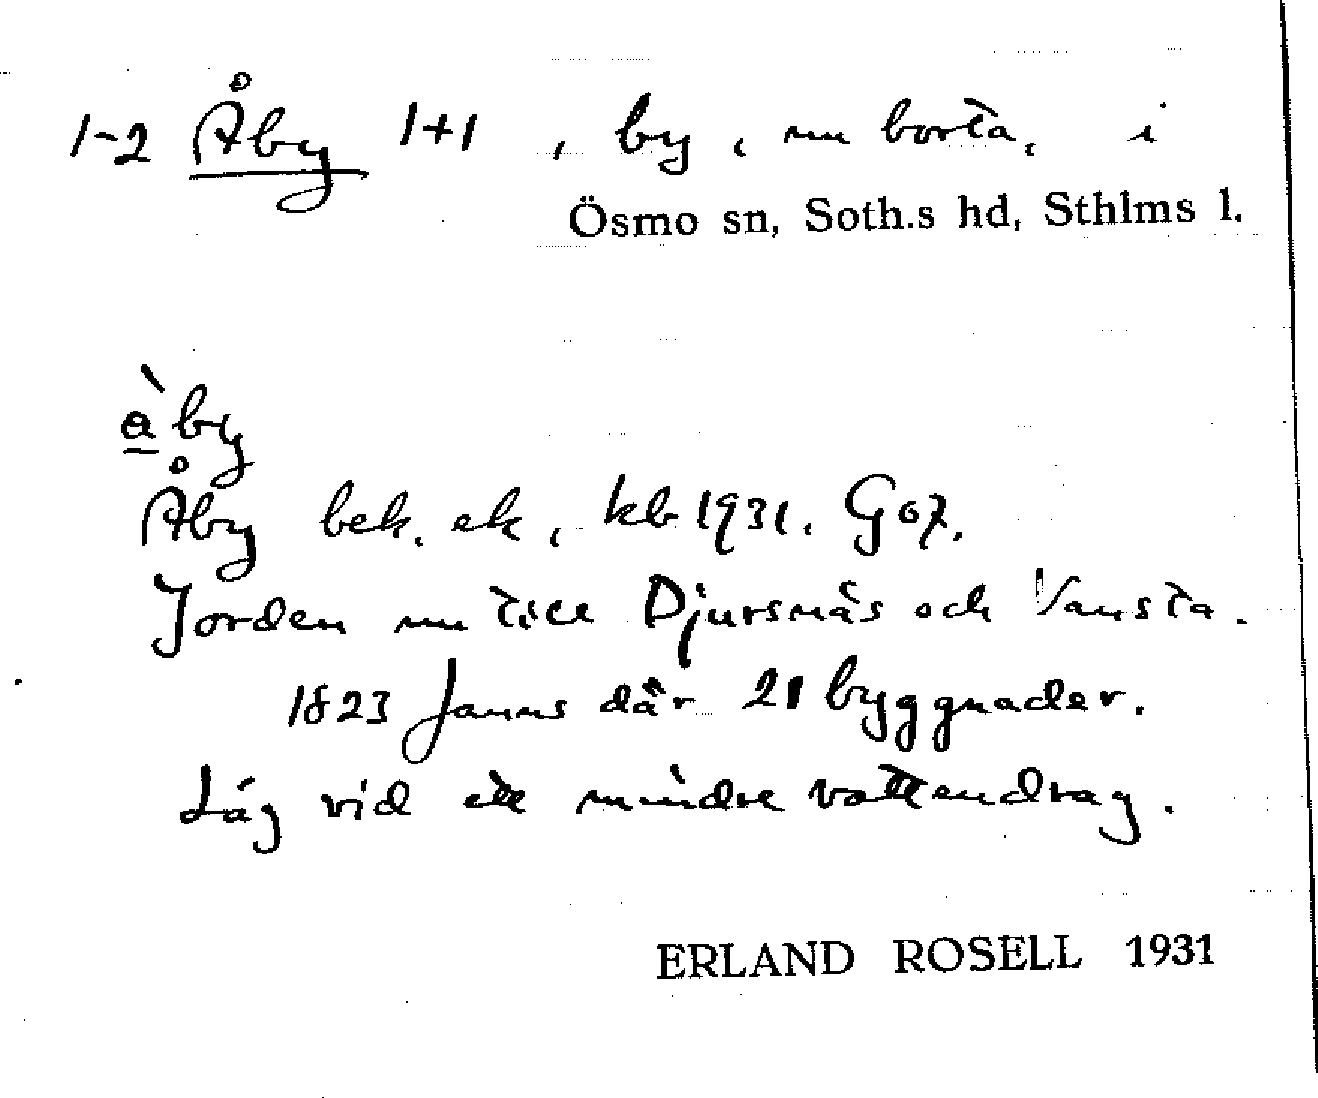 1-2 Åby 1+1, by, nu borta, i
Ösmo sn, Soth.s hd, Sthlms l.
àby
Åby bek. ek, kb 1931. G07.
Jorden nu till Djursnäs och Vansta.
1823 fanns där 21 byggnader.
Låg vid ett mindre vattendrag.
ERLAND ROSELL 1931